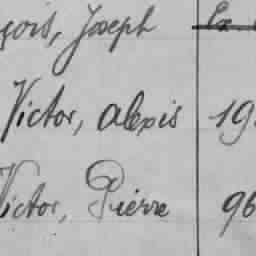 çois, Joseph
Victor, Alexis 19
Victor, Pierre 96